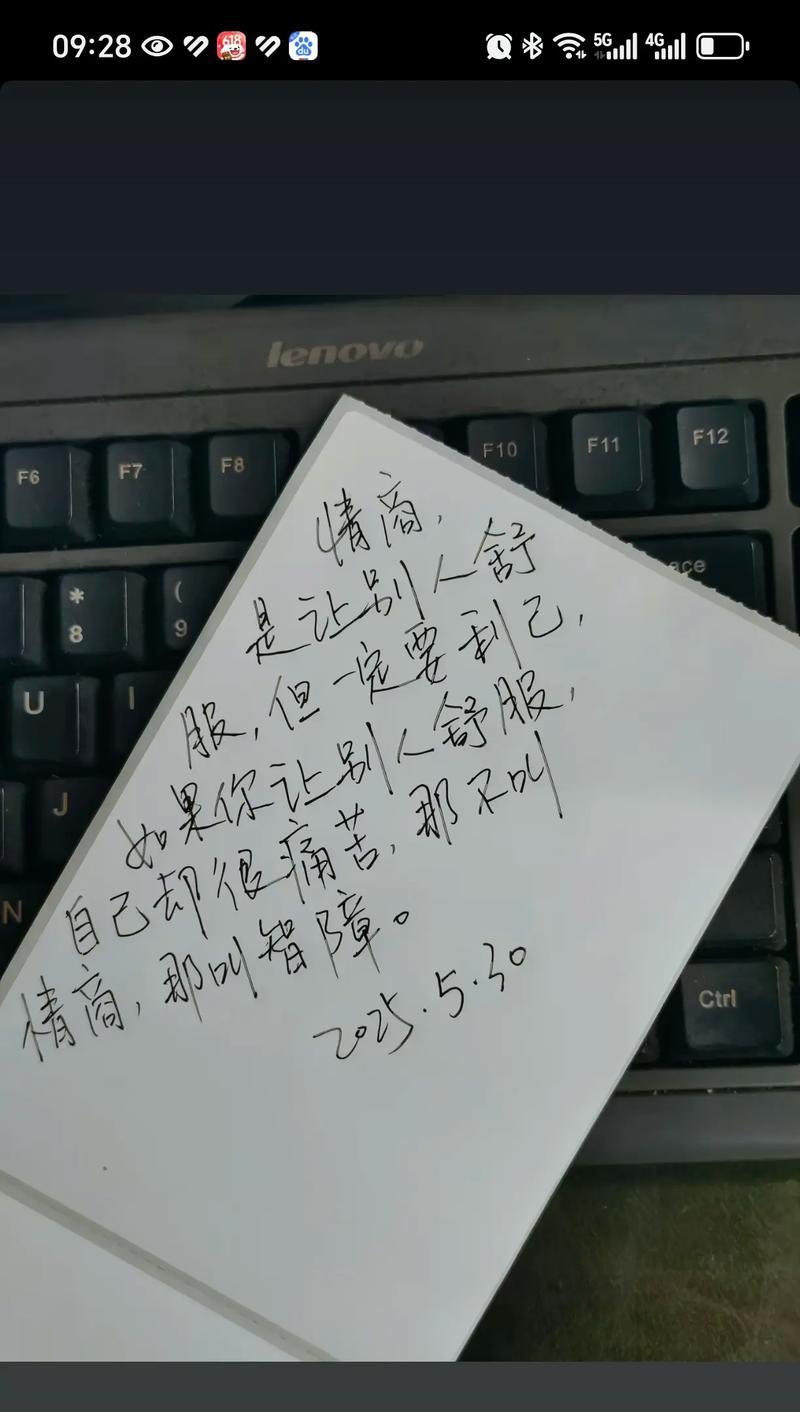 09:28
618
du
5G
4G
lenovo
F6
F7
F8
F10
F11
F12
*
8
(
9
ace
U
I
J
N
Ctrl
情商，
是让别人舒
服，但一定要利己，
如果你让别人舒服，
自己却很痛苦，那不叫
情商，那叫智障。
2025.5.30